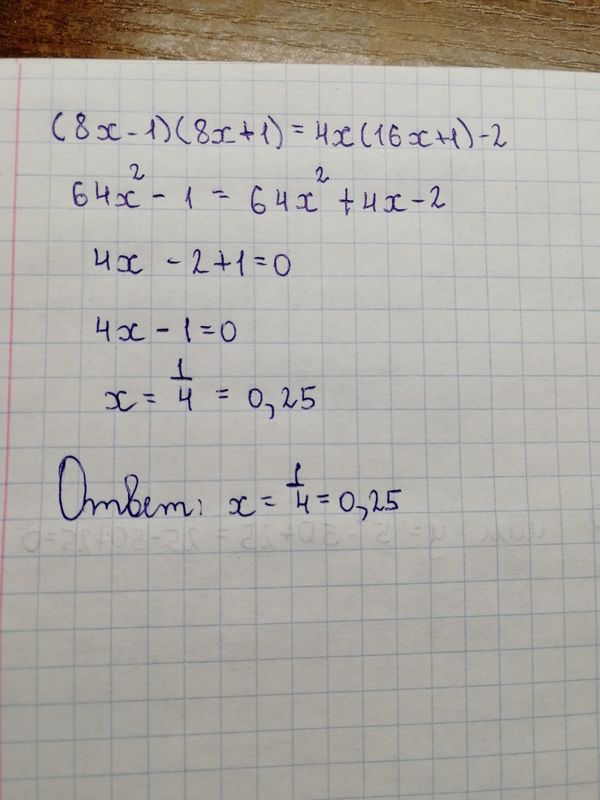 (8x-1)(8x+1)=4x(16x+1)-2
64x² - 1 = 64x² + 4x - 2
4x - 2+1=0
4x - 1=0
x = 1/4 = 0,25
Ответ: x = 1/4 = 0,25